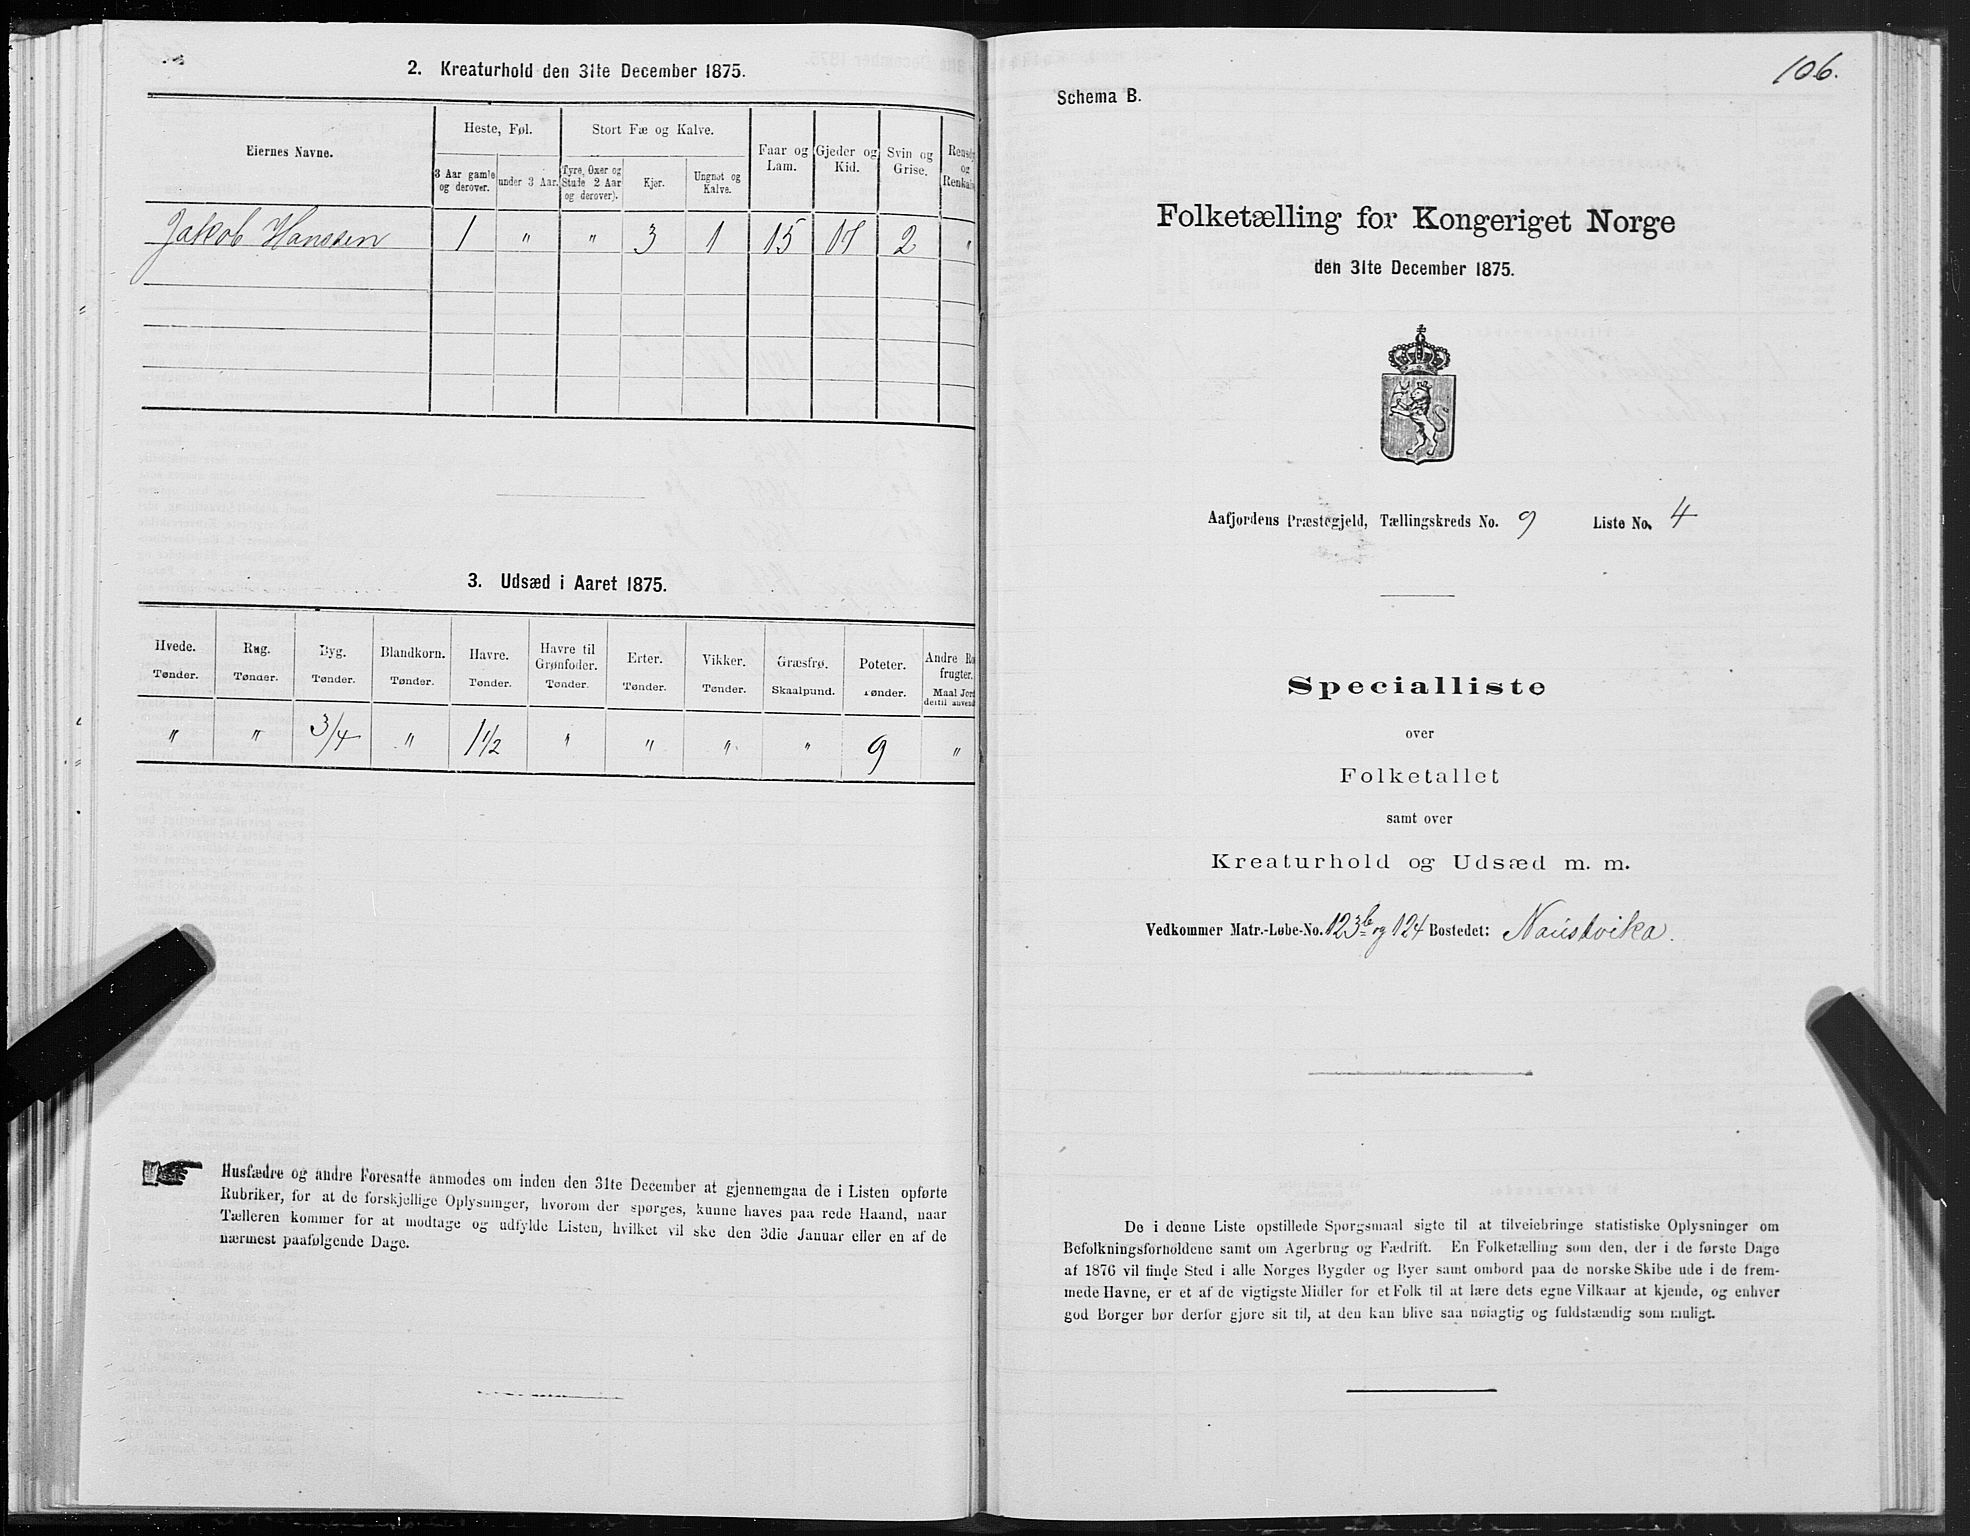 2. Kreaturhold den 31te December 1875.
Eiernes Navne.
Heste, Føl.
Stort Fæ og Kalve.
Faar og Lam.
Gjeder og Kid.
Svin og Grise.
og
3 Aar gamle og derover.
under 3 Aar.
Tyre, Oxer og Stude 2 Aar og derover).
Kjør.
Ungnøt og Kalve.
Jakob Hanssen 1 " " 3 1 15 17 2 "
3. Udsæd i Aaret 1875.
Hvede. Rug. Byg. Blandkorn. Havre. Havre til Grønfoder. Erter. Vikker. Græsfrø. Poteter. Andre
frugter.
Tønder. Tønder. Tønder. Tønder. Tønder. Tønder. Tønder. Tønder. Skaalpund. Tønder. Maal Jord
dertil
" " 3/4 " 1 1/2 " " " " 9 "
Husfædre og andre Foresatte anmodes om inden den 31te December at gjennemgaa de i Listen opførte
Rubriker, for at de forskjellige Oplysninger, hvorom der spørges, kunne haves paa rede Haand, naar
Tælleren kommer for at modtage og udfylde Listen, hvilket vil ske den 3die Januar eller en af de
nærmest paafølgende Dage.
106.
Schema B.
Folketælling for Kongeriget Norge
den 31te December 1875.
Aafjordens Præstegjeld, Tællingskreds No. 9 Liste No. 4
Specialliste
over
Folketallet
samt over
Kreaturhold og Udsæd m. m.
Vedkommer Matr.-Løbe-No. 123b og 124 Bostedet: Naustvika.
De i denne Liste opstillede Spørgsmaal sigte til at tilveiebringe statistiske Oplysninger om
Befolkningsforholdene samt om Agerbrug og Fædrift. En Folketælling som den, der i de første Dage
af 1876 vil finde Sted i alle Norges Bygder og Byer samt ombord paa de norske Skibe ude i de frem-
mede Havne, er et af de vigtigste Midler for et Folk til at lære dets egne Vilkaar at kjende, og enhver
god Borger bør derfor gjøre sit til, at den kan blive saa nøiagtig og fuldstændig som muligt.